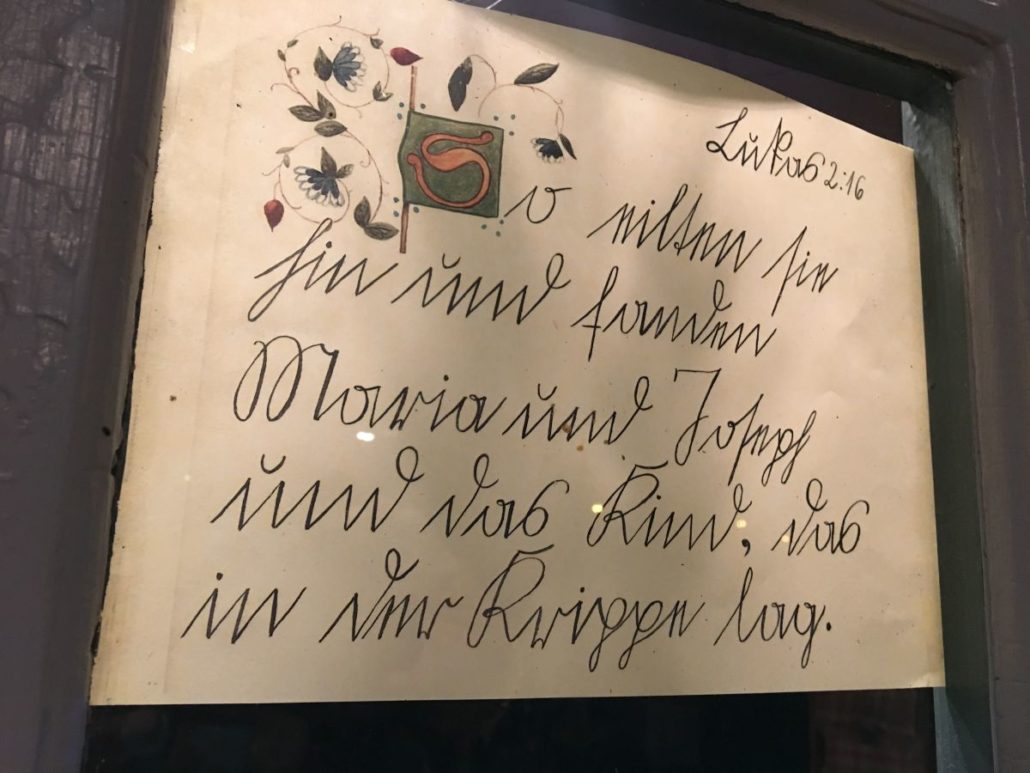 Lukas 2:16
So eilten sie
hin und fanden
Maria und Joseph
und das Kind, das
in der Krippe lag.